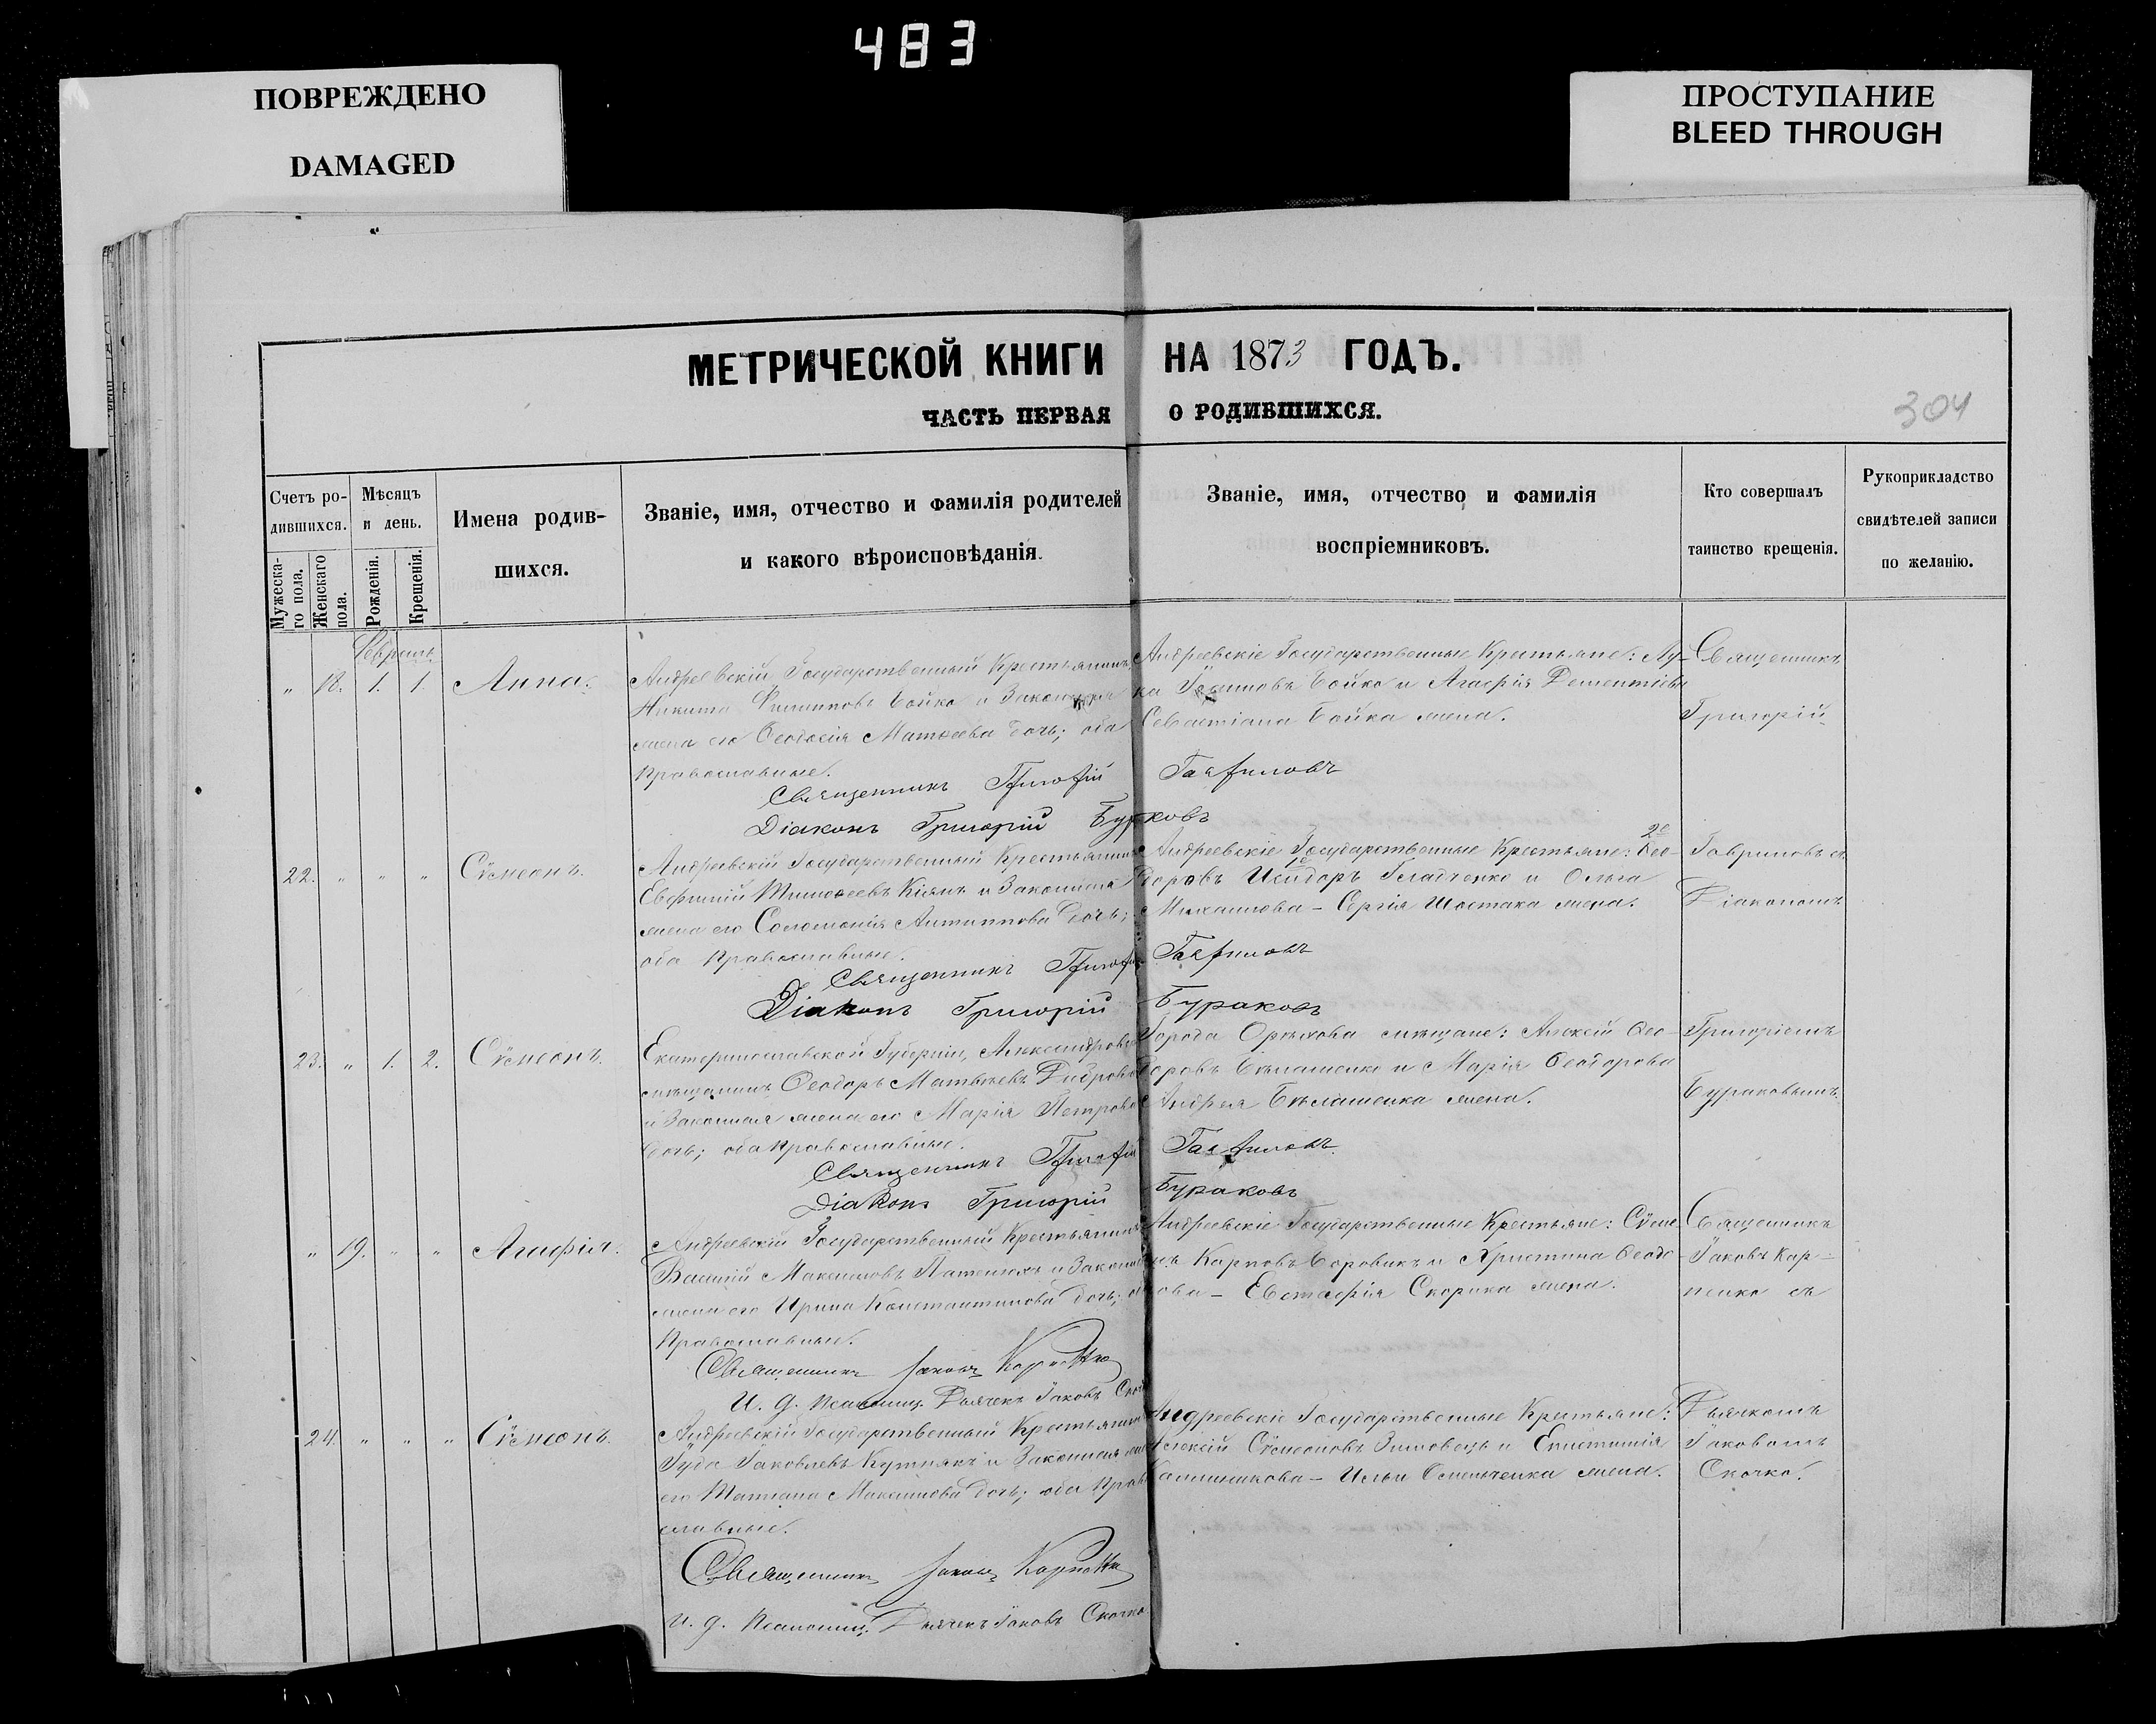 483
ПОВРЕЖДЕНО
DAMAGED
ПРОСТУПАНИЕ
BLEED THROUGH
МЕТРИЧЕСКОЙ КНИГИ НА 1873 ГОДЪ.
ЧАСТЬ ПЕРВАЯ О РОДИВШИХСЯ.
304
Счетъ ро-
дившихся.
Мужеска-
го пола.
Женскаго
пола.
Мѣсяцъ
и день.
Рожденія.
Крещенія.
Имена родив-
шихся.
Званіе, имя, отчество и фамилія родителей
и какого вѣроисповѣданія.
Званіе, имя, отчество и фамилія
воспріемниковъ.
Кто совершалъ
таинство крещенія.
Рукоприкладство
свидѣтелей записи
по желанію.
Февраль
" 18. 1. 1. Анна.
Андреевскій Государственный Крестьянинъ
Никита Филипповъ Бойко и Законная
жена его Ѳеодосія Матѳеева дочь; оба
Православные.
Андреевскіе Государственные Крестьяне: Лу-
ка Бойко и Агафія Дементіева
Севастіана Бойка жена.
Священникъ
Григорій
Священникъ Григорій Гавриловъ
Діаконъ Григорій Бураковъ
22. " " " Сѵмеонъ.
Андреевскій Государственный Крестьянинъ
Евфимій Тимоѳеевъ Кіянъ и Законная
жена его Соломонія Антиппова дочь;
оба Православные.
Андреевскіе Государственные Крестьяне: Ѳео-
доровъ Исидоръ Гладченко и Ольга
Михаилова - Сергія Шостака жена.
Гавриловъ съ
Діакономъ
Священникъ Григорій Гавриловъ
Діаконъ Григорій Бураковъ
23. " 1. 2. Сѵмеонъ.
Екатеринославской Губерніи, Александровскій
мѣщанинъ Ѳеодоръ Матвѣевъ
и Законная жена его Марія Петрова
дочь; оба Православные.
Города Орѣхова мѣщане: Алексій Ѳео-
доровъ Бѣлашенко и Марія Ѳеодорова
Андрея Бѣлашенка жена.
Григоріемъ
Бураковымъ.
Священникъ Григорій Гавриловъ
Діаконъ Григорій Бураковъ
" 19. " " Агафія.
Андреевскій Государственный Крестьянинъ
Василій Максимовъ и Законная
жена его Ирина Константинова дочь; оба
Православные.
Андреевскіе Государственные Крестьяне: Сѵме-
нъ Карповъ Боровикъ и Христина Ѳеодо-
рова - Евстафія Скорика жена.
Священникъ
Іаковъ Кар-
пенко съ
Священникъ Іаковъ Карпенко
И. д. псаломщ. Дьячекъ Іаковъ Скочко
24. " " " Сѵмеонъ.
Андреевскій Государственный Крестьянинъ
Іуда Іаковлевъ и Законная жена
его Татіана Максимова дочь; оба Право-
славные.
Андреевскіе Государственные Крестьяне:
Алексій Сѵмеоновъ Зимовецъ и Епистимія
Каллиникова - Ильи Омельченка жена.
Дьячкомъ
Іаковомъ
Скочко.
Священникъ Іаковъ Карпенко
И. д. псаломщ. Дьячекъ Іаковъ Скочко